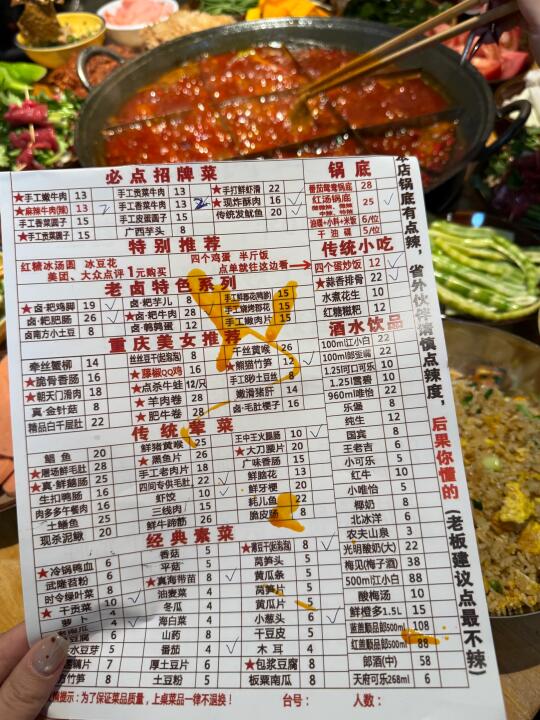 必点招牌菜 锅底
★手工嫩牛肉 13 手工贡菜牛肉 13 ★手打鲜虾滑 22 番茄鸳鸯锅底 28
★麻辣牛肉(辣) 13 2 手工香菜牛肉 13 2 ★现炸酥肉 16 红汤锅底 25
手工香菜圆子 13 手工皮蛋圆子 13 传统发鱿鱼 20
★手工贡菜圆子 13 广西芋头 8 油碟+小料+米饭 6/位
干油碟 5/位
特别推荐 传统小吃
红糖冰汤圆 冰豆花 四个鸡蛋 半斤饭 四个蛋炒饭 12
美团、大众点评1元购买 点单就往这边看→ ★蒜香排骨 22
老卤特色系列 水煮花生 10
★卤·粑鸡脚 19 卤·粑芋儿 8 手工鲜郡花(鸭胗) 15 红糖糍粑 12
★卤·粑肥肠 26 ★卤·粑牛肉 28 手工嫩烤郡花 15
卤南方小土豆 8 卤·鹌鹑蛋 12 手工嫩肉片 15
重庆美女推荐 酒水饮品
牵丝蟹柳 14 丝丝豆干(起泡泡) 8 干丝黄喉 26 100ml江小白 22
★脆骨香肠 16 ★藤椒QQ鸡 16 ★熊猫竹笋 12 100ml郎歪嘴 22
★朝天门滑肉 18 ★点杀牛蛙 12/只 手工8秒土豆丝 8 1.25l可口可乐 10
真·金针菇 8 ★羊肉卷 28 嫩滑猪肝 14 1.25l雪碧 10
精品白千层肚 22 ★肥牛卷 28 卤·毛肚梗子 16 960ml唯怡 22
传统荤菜 乐堡 8
鮰鱼 20 鲜猪黄喉 25 王中王火腿肠 10 纯生 12
★屠场鲜毛肚 28 ★黑鱼片 26 ★大刀腰片 20 国宾 8
★真·鲜鹅肠 25 手工老肉片 18 广味香肠 15 王老吉 6
生扣鸭肠 16 四间专供毛肚 22 鲜脑花 13 小可乐 5
肉多多午餐肉 16 虾饺 10 鲜牙梗 20 红牛 10
土鳝鱼 25 三线肉 15 耗儿鱼 8 小唯怡 5
现杀泥鳅 20 鲜牛蹄筋 26 脆皮肠 8 椰奶 8
经典素菜 北冰洋 6
★冷锅鸭血 8 香菇 5 ★薄豆干(起泡泡) 8 农夫山泉 3
武隆苕粉 8 平菇 5 莴笋头 5 光明酸奶(大) 22
时令绿叶菜 8 ★真海带苗 8 黄瓜条 5 梅见(梅子酒) 38
★干贡菜 10 油麦菜 4 莴笋片 5 500ml江小白 88
萝卜 4 冬瓜 4 黄瓜片 5 酸梅汤 10
海白菜 4 小葱头 6 鲜橙多1.5L 15
山药 8 干豆皮 5 蓝盖顺品郎500ml 108
番茄 4 木耳 4 红盖顺品郎500ml 88
厚土豆片 6 ★包浆豆腐 8 郎酒(中) 58
土豆粉 5 板栗南瓜 8 天府可乐268ml 6
提示:为了保证菜品质量,上桌菜品一律不退换! 台号: 人数:
本店锅底有点辣,省外伙伴请慎点辣度,后果你懂的(老板建议点最不辣)